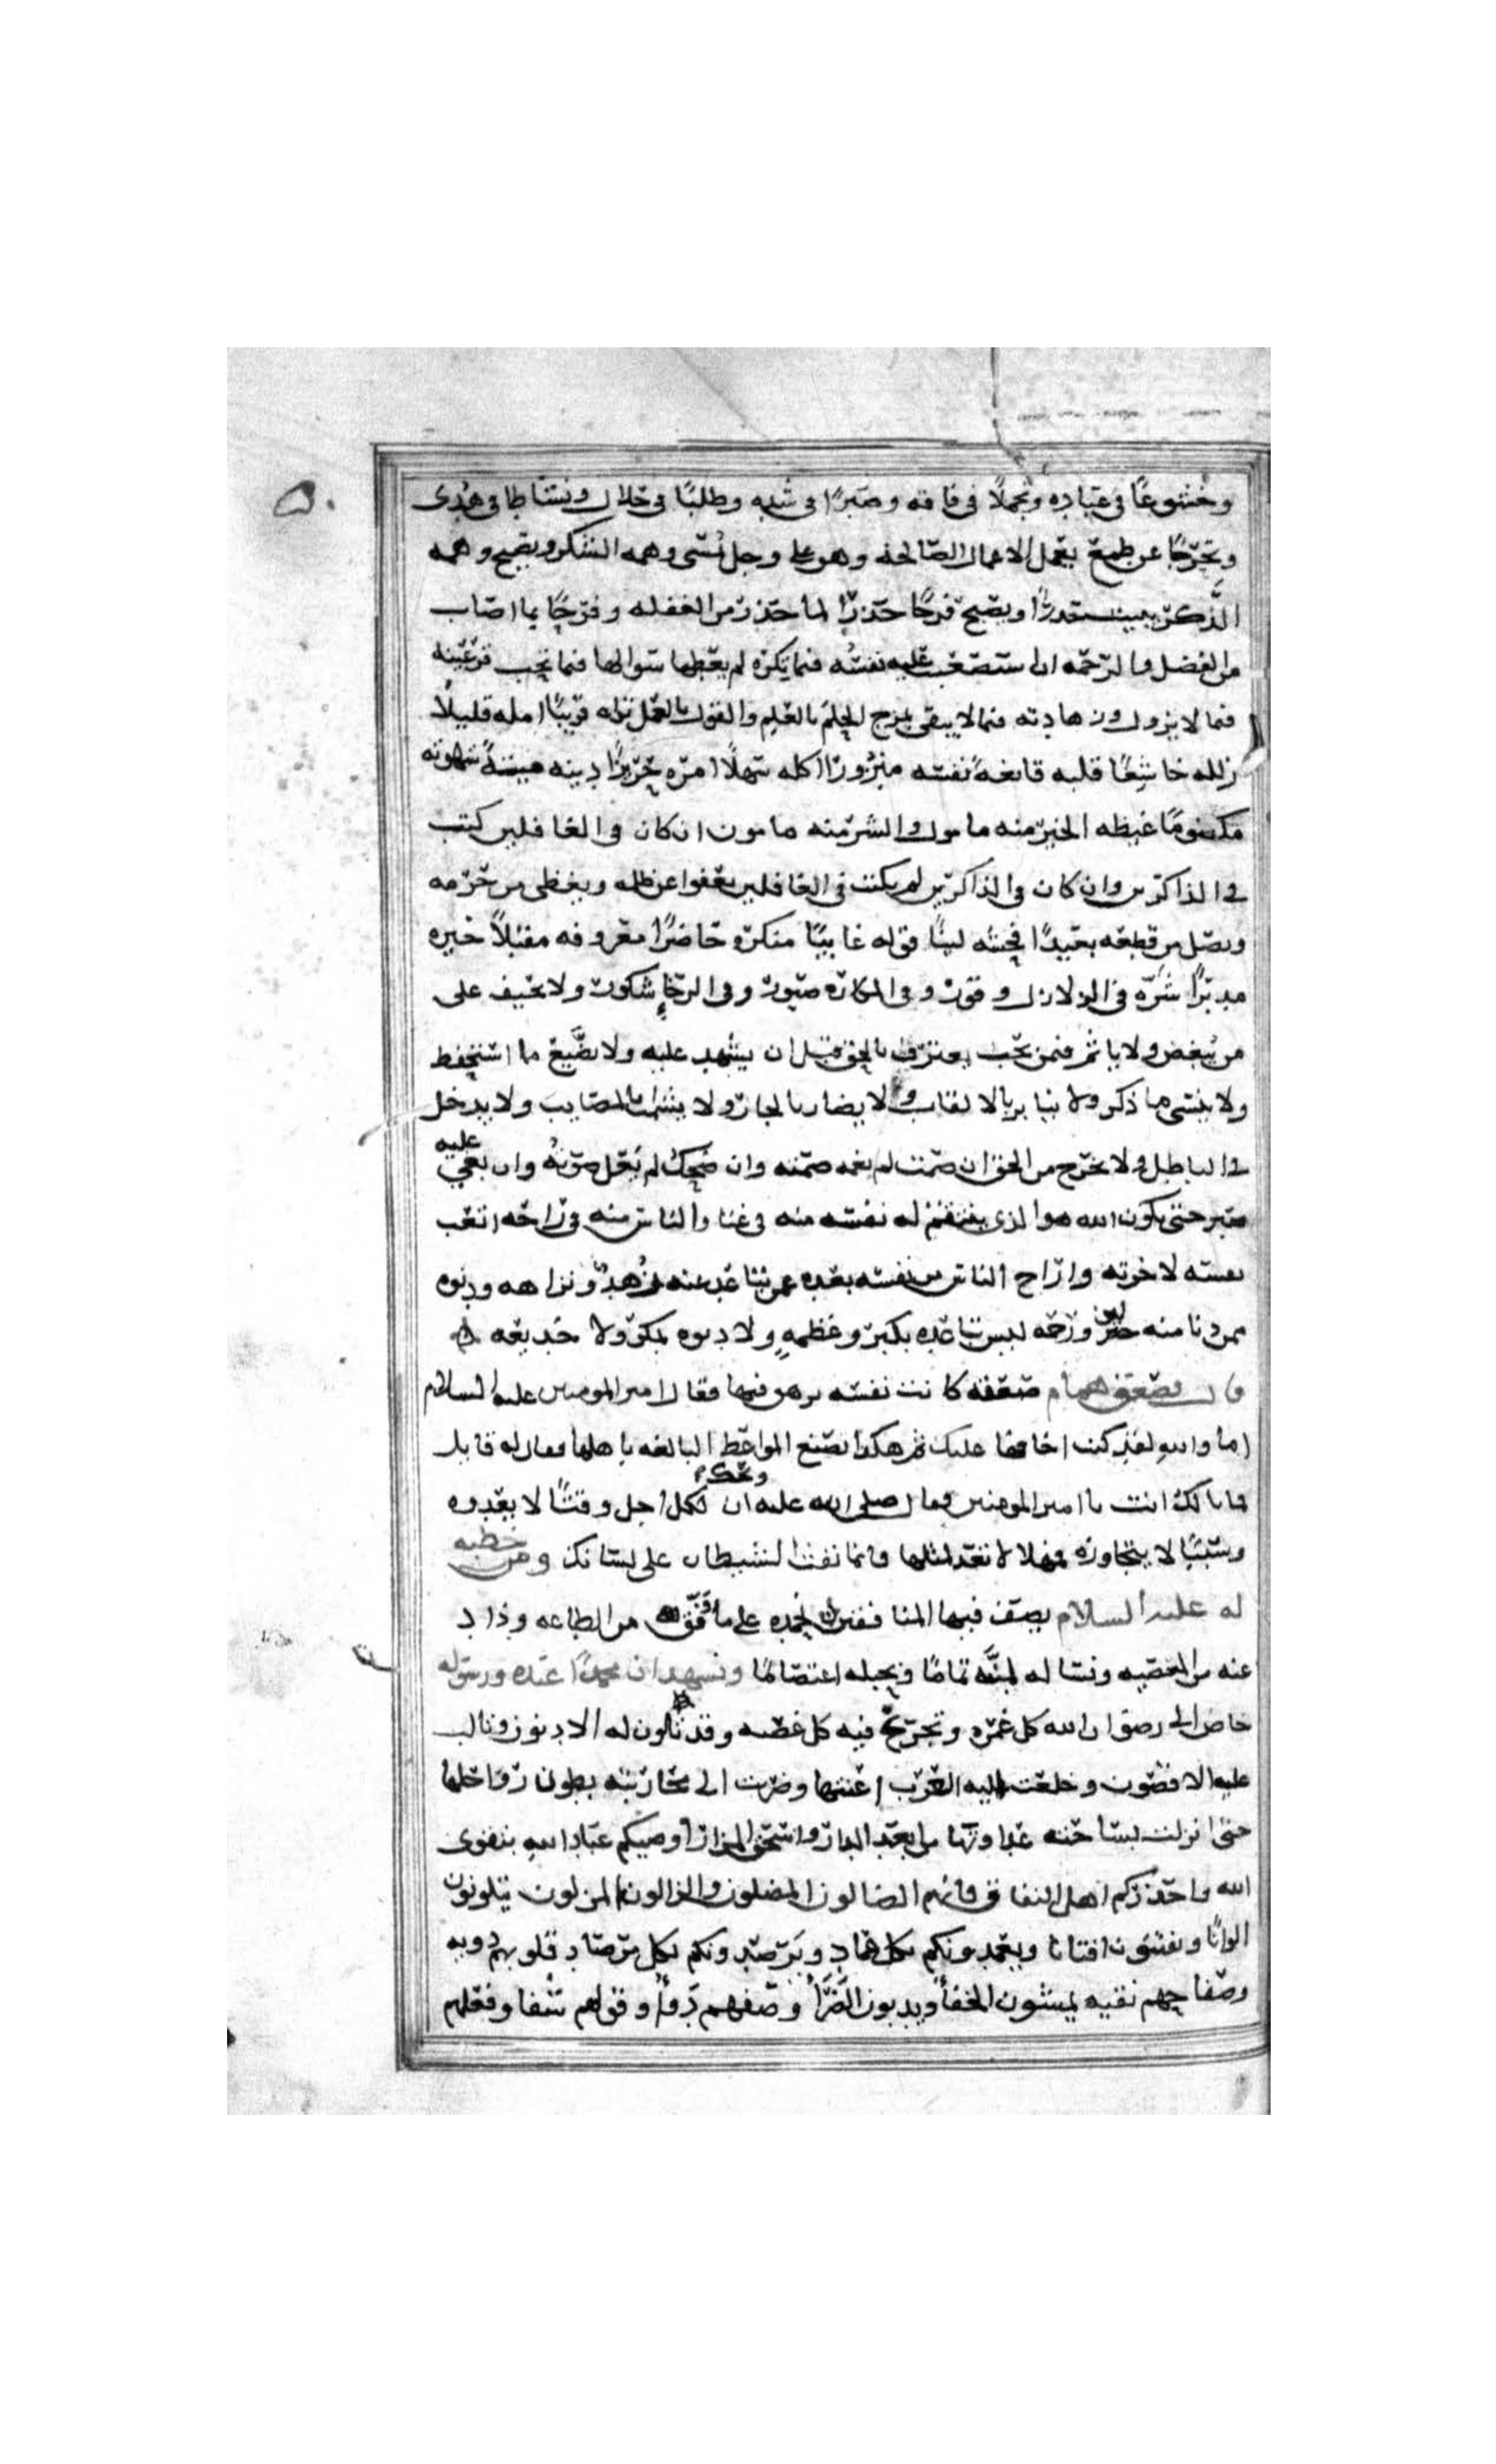 وخشوعًا في عباده وتجملًا في فاقه وصبرًا في شده وطلبًا في حلال ونشاطا في هدى
وتحرّجًا عن طمع يعمل الاعمال الصالحه وهو على وجل يُمسى وهمه الشكر ويصبح وهمه
الذّكر يبيت حذرًا ويصبح فرحًا حذرًا لما حذر من الغفله وفرحًا بما اصاب
من الفضل والرحمه ان استصعبت عليه نفسُه فيما تكره لم يعطها سوالها فيما تحب قرة عينه
فيما لا يزول وزهادته فيما لا يبقى يمزج الحلم بالعلم والقول بالعمل تراه قريبًا امله قليلًا
زلله خاشعًا قلبه قانعةً نفسه منزورًا اكله سهلًا امره حريزًا دينه ميتةً شهوته
مكظومًا غيظه الخير منه مامول والشر منه مامون ان كان في الغافلين كتب
في الذاكرين وان كان في الذاكرين لم يكتب في الغافلين يعفوا عن ظلمه ويعطى من حرمه
ويصل من قطعه بعيدًا فحشه لينًا قوله غايبًا منكره حاضرًا معروفه مقبلًا خيره
مدبرًا شرّه في الزلازل وقور وفي المكاره صبور وفي الرخاءِ شكور ولا يحيف على
من يُبغض ولا ياثم فيمن يحب يعترف بالحق قبل ان يشهد عليه ولا يضيّع ما استحفظ
ولا ينسى ما ذكر ولا ينابز بالالقاب ولا يضار بالجار ولا يشمت بالمصايب ولا يدخل
في الباطل ولا يخرج من الحق ان صمت لم يغمه صمته وان ضحك لم يَعْل صوتهُ وان بغي عليه
صبر حتى يكون الله هو الذي ينتقم له نفسه منه في عنا والناس منه في راحه اتعب
نفسه لاخرته واراح الناس من نفسه بعده عمن تباعد عنه زُهدٌ ونزاهه ودنوه
ممن دنا منه لين ورحمه ليس تباعده بكبر وعظمهٍ ولا دنوه بمكر ولا خديعه
قال فصعق همام صعقه كانت نفسه فيها فقال امير المومنين عليه السلام
اما واللهِ لقد كنت اخافها عليك ثم هكذا تصنع المواعظ البالغه باهلها فقال له قايل
فما بالك انت يا امير المومنين فقال صلى الله عليه ويحك ان لكل اجل وقتًا لا يعدوه
وسببًا لا يتجاوزه فمهلا لا تعد لمثلها فانما نفث الشيطان على لسانك ومن خطبه
له عليه السلام يصف فيها المنافقين نحمده على ما وفّق من الطاعه وذاد
عنه من المعصيه ونساله لمنّته تمامًا وبحبله اعتصامًا ونشهد ان محمدًا عبده ورسوله
خاض الى رضوان الله كل غمره وتجرّع فيه كل غصه وقد تلون له الادنون وتالب
عليه الاقصون وخلعت اليه العرب اعنتها وضربت الى محاربته بطون رواحلها
حتى انزلت بساحته عداوتها من ابعد الدار واسحق المزار اوصيكم عباد الله بتقوى
الله واحذركم اهل النفاق فانهم الضالون المضلون والزالون المزلون يتلونون
الوانًا ويفتنون افتنانا ويعمدونكم بكل عماد ويرصدونكم بكل مرصاد قلوبهم دويه
وصفاحهم نقيه يمشون الخفأ ويدبون الضَّرَّأ وصفهم دوأ وقولهم شفا وفعلهم